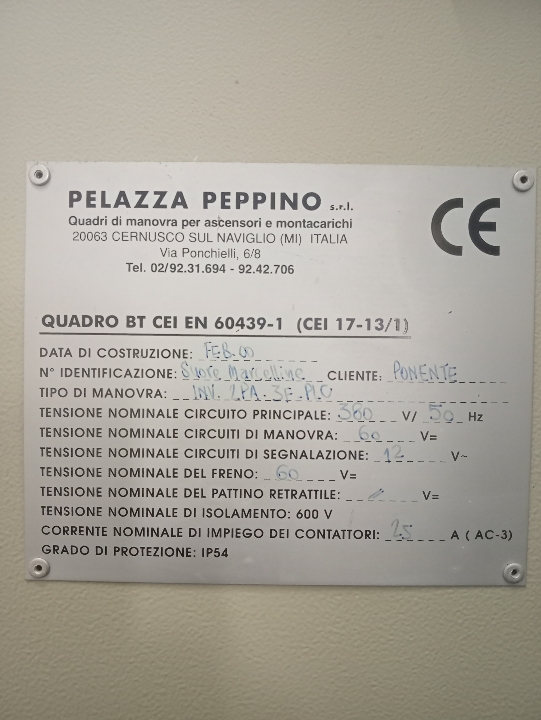 PELAZZA PEPPINO s.r.l.
Quadri di manovra per ascensori e montacarichi
20063 CERNUSCO SUL NAVIGLIO (MI) ITALIA
Via Ponchielli, 6/8
Tel. 02/92.31.694 - 92.42.706
CE
QUADRO BT CEI EN 60439-1 (CEI 17-13/1)
DATA DI COSTRUZIONE: FEB.00
N° IDENTIFICAZIONE: Suore Marcelline CLIENTE: PONENTE
TIPO DI MANOVRA: INV. 2PA. 3F. PLC
TENSIONE NOMINALE CIRCUITO PRINCIPALE: 380 V/ 50 Hz
TENSIONE NOMINALE CIRCUITI DI MANOVRA: 60 V=
TENSIONE NOMINALE CIRCUITI DI SEGNALAZIONE: 12 V~
TENSIONE NOMINALE DEL FRENO: 60 V=
TENSIONE NOMINALE DEL PATTINO RETRATTILE: V=
TENSIONE NOMINALE DI ISOLAMENTO: 600 V
CORRENTE NOMINALE DI IMPIEGO DEI CONTATTORI: 25 A ( AC-3)
GRADO DI PROTEZIONE: IP54